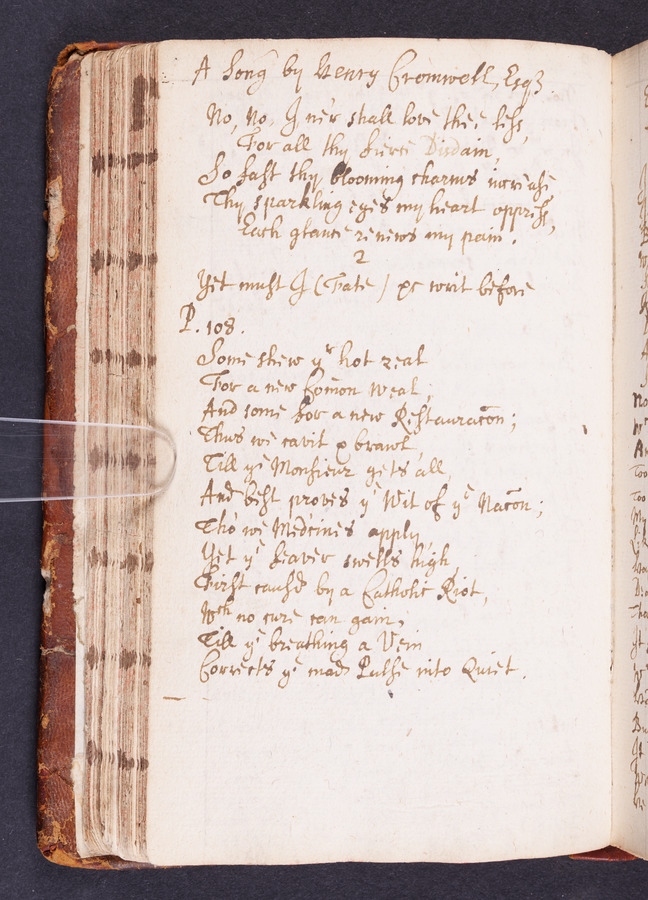 A Song by Henry Cromwell, Esqr
No, No, I ne'r shall love thee less,
For all thy fierce Disdain,
So fast thy blooming charms increase
Thy sparkling eyes my heart oppress,
Each glance renews my pain.
2
Yet must I (Fate) &c writ before
P. 108.
Some shew yr hot zeal
For a new Com̄on Weal;
And some for a new Restauracōn;
Thus we cavil & brawl
Till ye Monsieur gets all,
And best proves ye Wit of ye Nacōn;
Tho we Medcines apply
Yet ye feaver swells high,
First caus'd by a Catholic Riot,
Wch no cure can gain;
Till ye breathing a Vein
Corrects ye mad Pulse into Quiet.